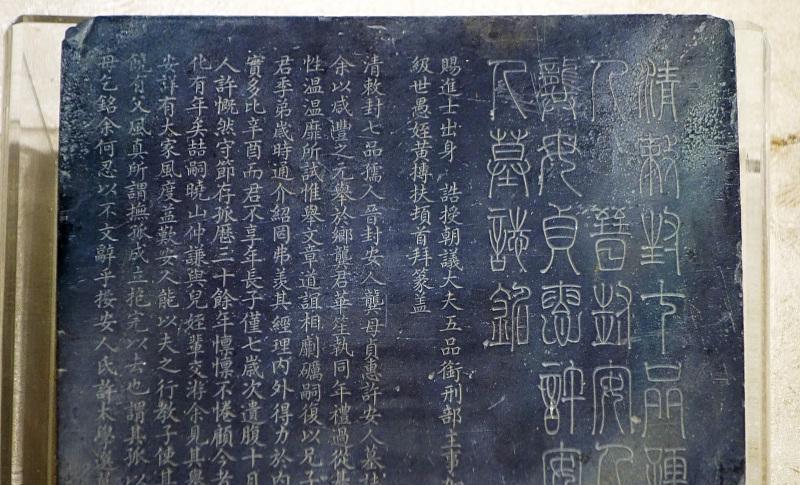 清敕封七品孺
人晉封安人
龔母貞惠許安
人墓誌銘
賜進士出身　誥授朝議大夫五品銜刑部主事
級世愚姪黃摶扶頓首拜篆蓋
清敕封七品孺人晉封安人龔母貞惠許安人墓誌
余以咸豐之元舉於鄉龔君華笙執同年禮過從甚
性溫溫靡所試惟與文章道誼相劘礪嗣復以兄子
君季弟歲時通介紹罔弗羨其經理內外得力於內
實多比辛酉而君不享年長子僅七歲次遺腹十月
人許慨然守節存孤歷三十餘年懍懍不惓顧今者
化有年矣喆嗣曉山仲謙與兒姪輩交游余見其舉
安詳有大家風度益歎安人能以夫之行教子使其
饒有父風真所謂撫孤成立抱完以去也謂其孤以
毋乞銘余何忍以不文辭乎按安人氏許太學